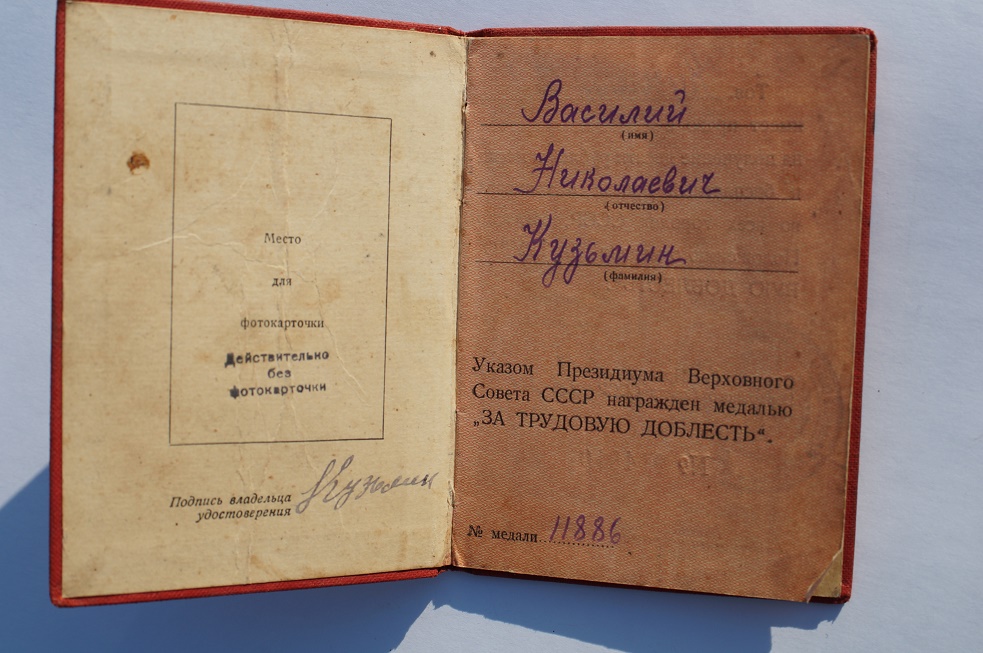 Место
для
фотокарточки
Действительно
без
фотокарточки
Подпись владельца
удостоверения
Кузьмин
Василий
(имя)
Николаевич
(отчество)
Кузьмин
(фамилия)
Указом Президиума Верховного
Совета СССР награжден медалью
„ЗА ТРУДОВУЮ ДОБЛЕСТЬ“.
№ медали 11886